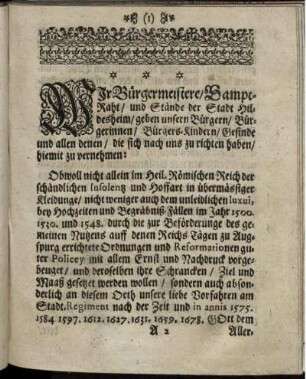 (1)
WIr Bürgermeistere/ Sampt-
Raht/ und Stände der Stadt Hil-
desheim/ geben unsern Bürgern/ Bür-
gerinnen/ Bürgers-Kindern/ Gesinde
und allen denen/ die sich nach uns zu richten haben/
hiemit zu vernehmen:
Obwoll nicht allein im Heil. Römischen Reich der
schändlichen Insolentz und Hoffart in übermässiger
Kleidunge/ nicht weniger auch dem unleidlichen luxui,
bey Hochzeiten und Begräbniß-Fällen im Jahr 1500.
1530. und 1548. durch die zur Beförderunge des ge-
meinen Nutzens auff denen Reichs Tägen zu Aug-
spurg errichtete Ordnungen und Reformationen gu-
ter Policey mit allem Ernst und Nachdruck vorge-
beuget/ und deroselben ihre Schrancken/ Ziel und
Maaß gesetzet werden wollen/ sondern auch abson-
derlich an diesem Orth unsere liebe Vorfahren am
Stadt-Regiment nach der Zeit und in annis 1575.
1584 1597. 1612. 1627. 1631. 1659. 1678. GOtt dem
A 2 Aller-